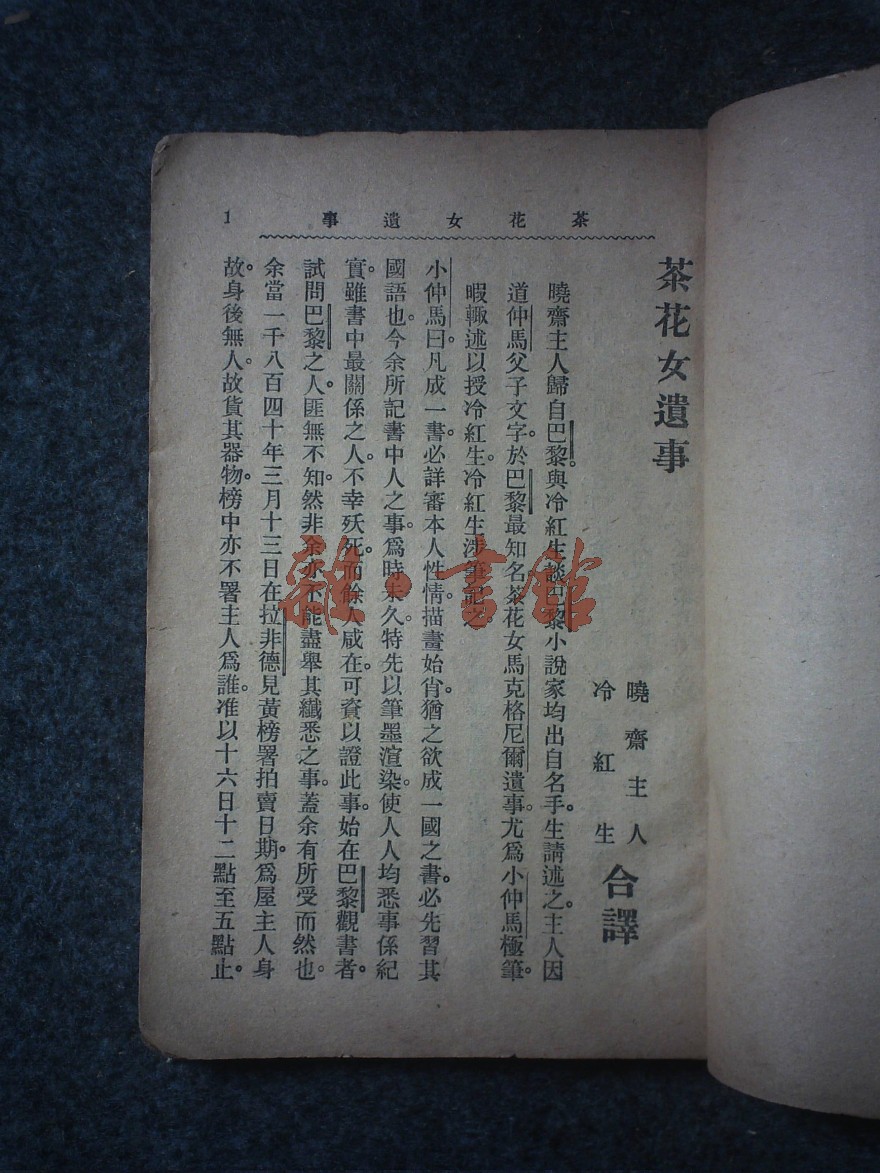 茶花女遺事
1
茶花女遺事
曉齋主人
冷紅生
合譯
曉齋主人歸自巴黎。與冷紅生談巴黎小說家均出自名手。生請述之。主人因
道仲馬父子文字。於巴黎最知名。茶花女馬克格尼爾遺事。尤爲小仲馬極筆。
暇輙述以授冷紅生。冷紅生涉筆記之。
小仲馬曰。凡成一書。必詳審本人性情。描畫始肖。猶之欲成一國之書。必先習其
國語也。今余所記書中人之事。爲時未久。特先以筆墨渲染。使人人均悉事係紀
實。雖書中最關係之人。不幸殀死。而餘人咸在。可資以證此事。始在巴黎觀書者。
試問巴黎之人。匪無不知。然非余亦不能盡舉其纖悉之事。蓋余有所受而然也。
余當一千八百四十年三月十三日在拉非德見黃榜署拍賣日期。爲屋主人身
故。身後無人。故貨其器物。榜中亦不署主人爲誰。准以十六日十二點至五點止。
雜·書館